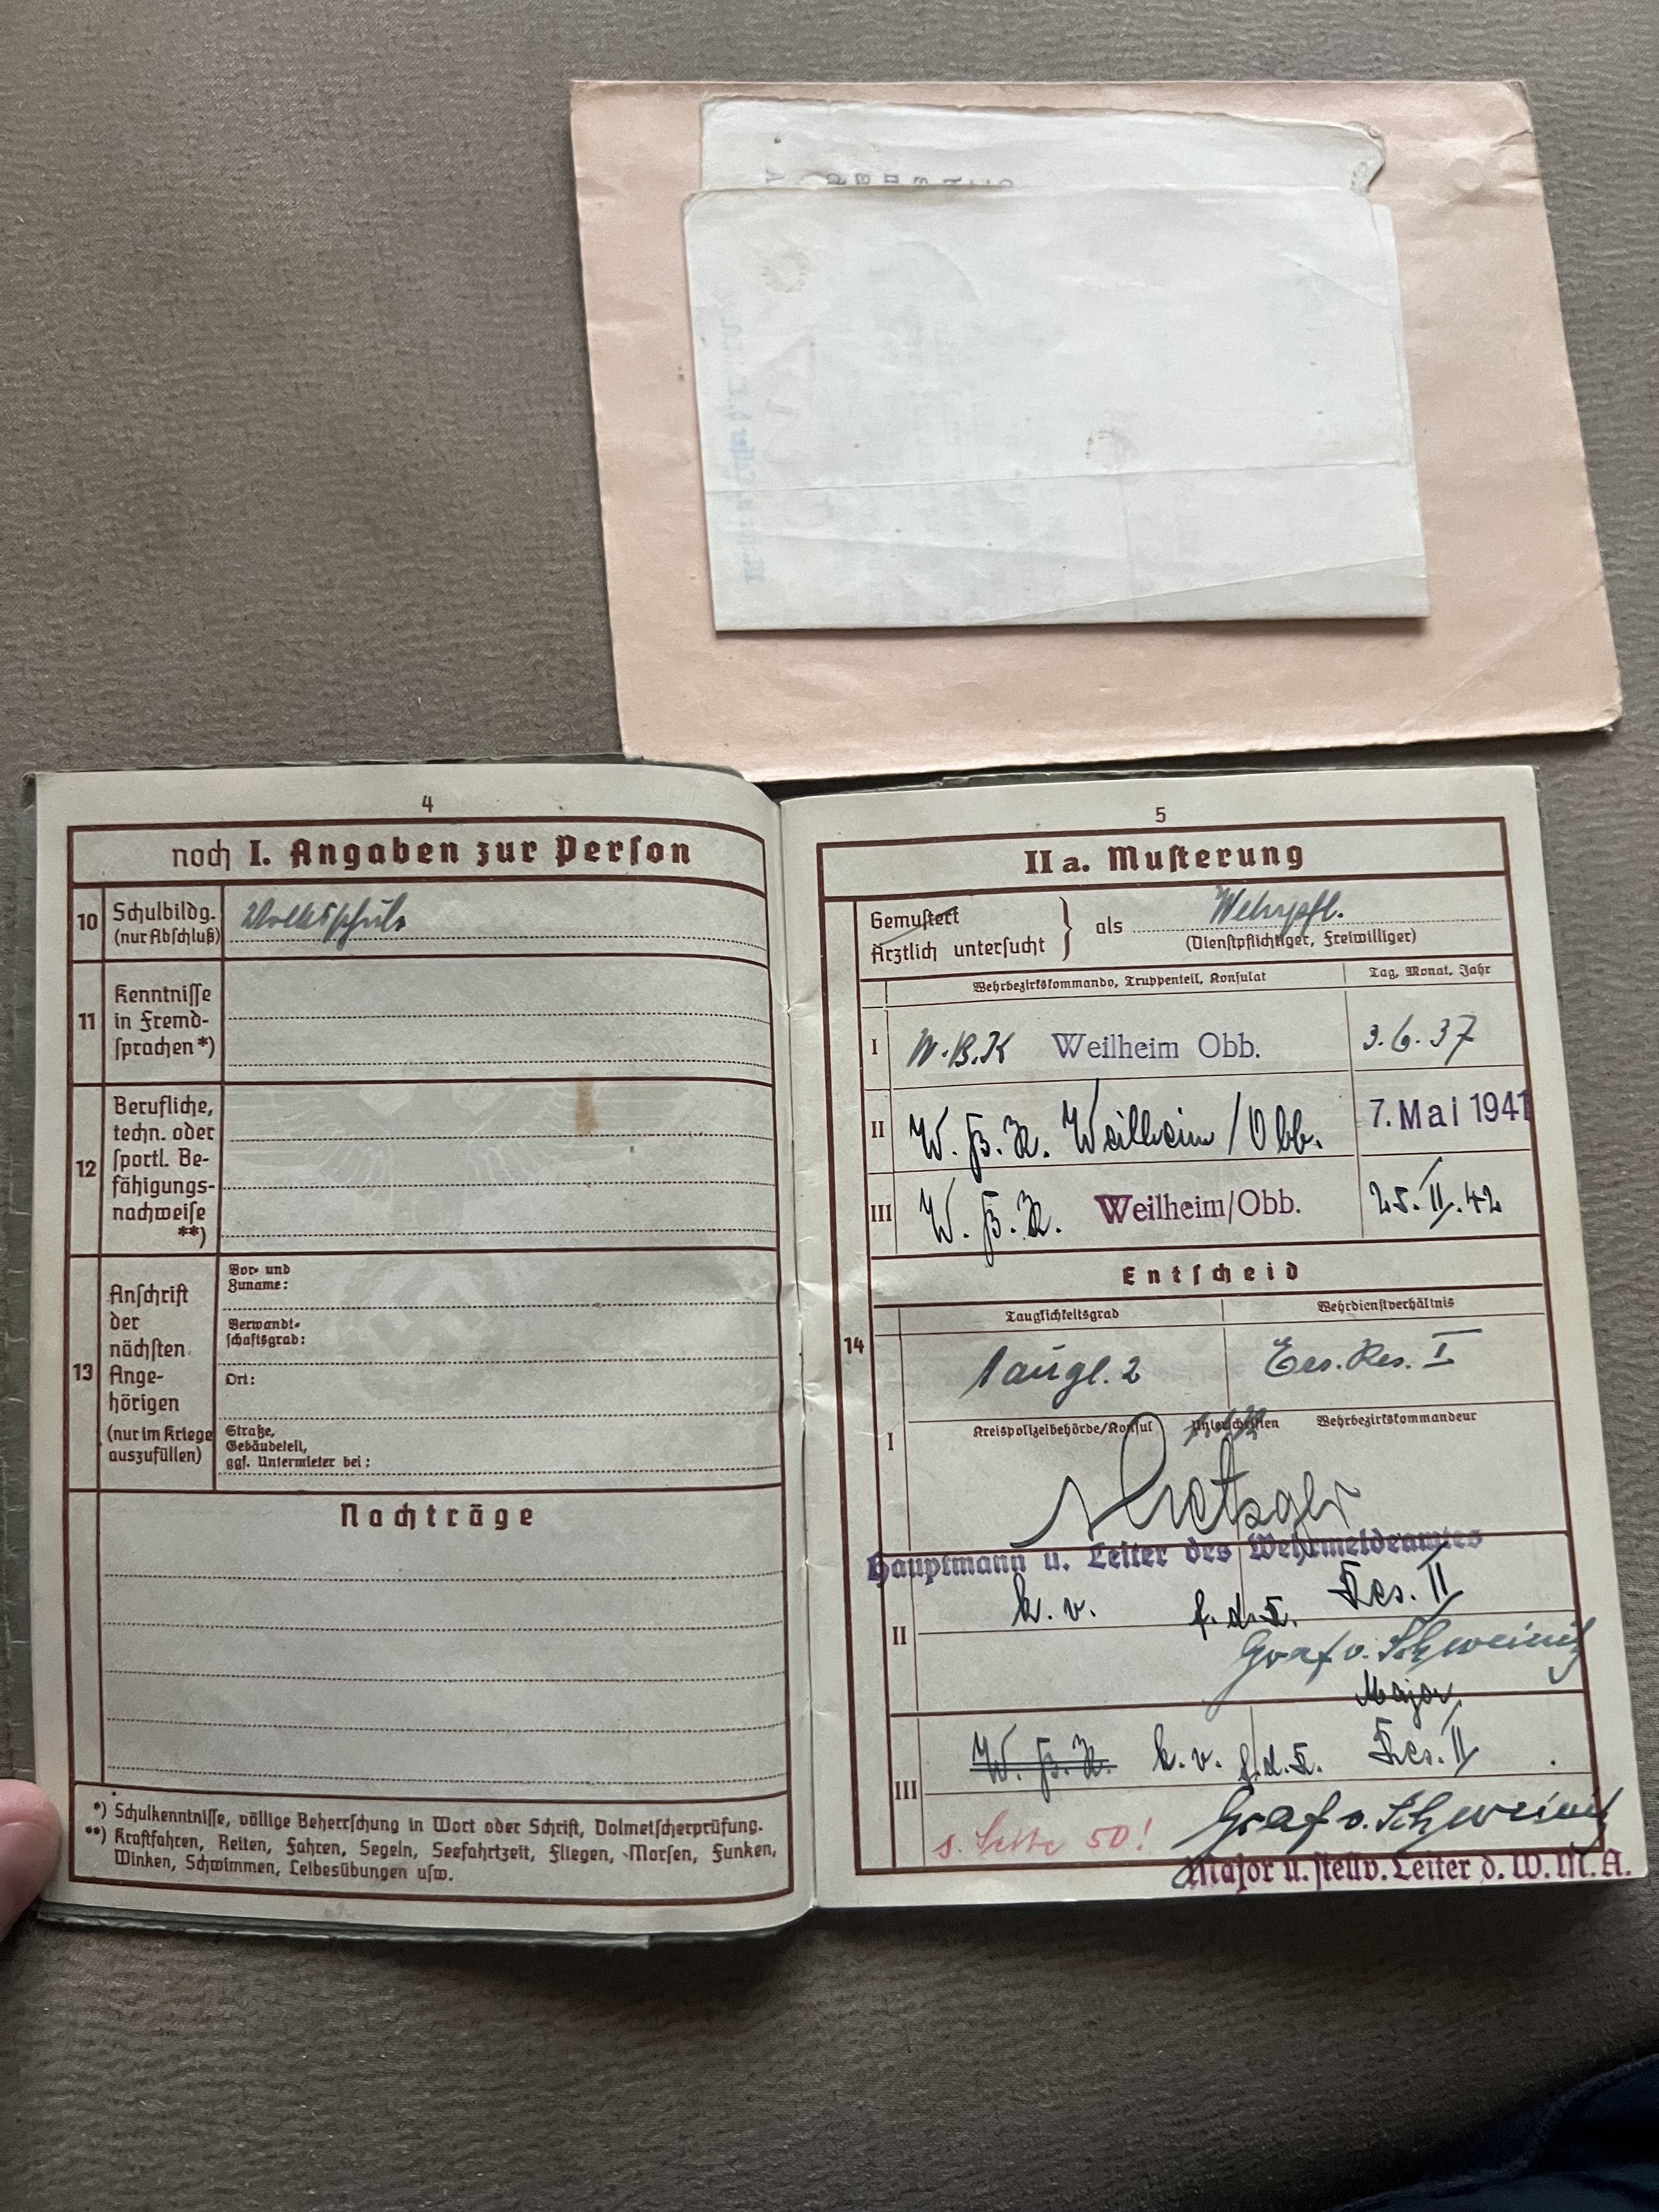 4
noch I. Angaben zur Person
10 Schulbildg. (nur Abschluß)
Volksschule
11 Kenntnisse in Fremdsprachen *)
12 Berufliche, techn. oder sportl. Befähigungsnachweise **)
13 Anschrift der nächsten Angehörigen (nur im Kriege auszufüllen)
Vor- und Zuname:
Verwandtschaftsgrad:
Ort:
Straße, Gebäudeteil, ggf. Untermieter bei:
Nachträge
*) Schulkenntnisse, völlige Beherrschung in Wort oder Schrift, Dolmetscherprüfung.
**) Kraftfahren, Reiten, Fahren, Segeln, Seefahrtzeit, Fliegen, Morsen, Funken,
Winken, Schwimmen, Leibesübungen usw.
5
IIa. Musterung
Gemustert
Ärztlich untersucht } als Wehrpfl.
(Dienstpflichtiger, Freiwilliger)
Wehrbezirkskommando, Truppenteil, Konsulat
Tag, Monat, Jahr
I W.B.K Weilheim Obb. 3.6.37
II W.B.K. Weilheim/Obb. 7. Mai 1941
III W.B.K. Weilheim/Obb. 25.II.42
Entscheid
14
Tauglichkeitsgrad
Wehrdienstverhältnis
Taugl. 2 Ers. Res. I
I
Kreispolizeibehörde/Konsul Unterschriften Wehrbezirkskommandeur
Hauptmann u. Leiter des Wehrmeldeamtes
II k.v. Res. II
Graf v. Schweinitz
Major
III W.B.K. k.v. Res. II
Graf v. Schweinitz
s. Seite 50!
Major u. stellv. Leiter d. W.M.A.